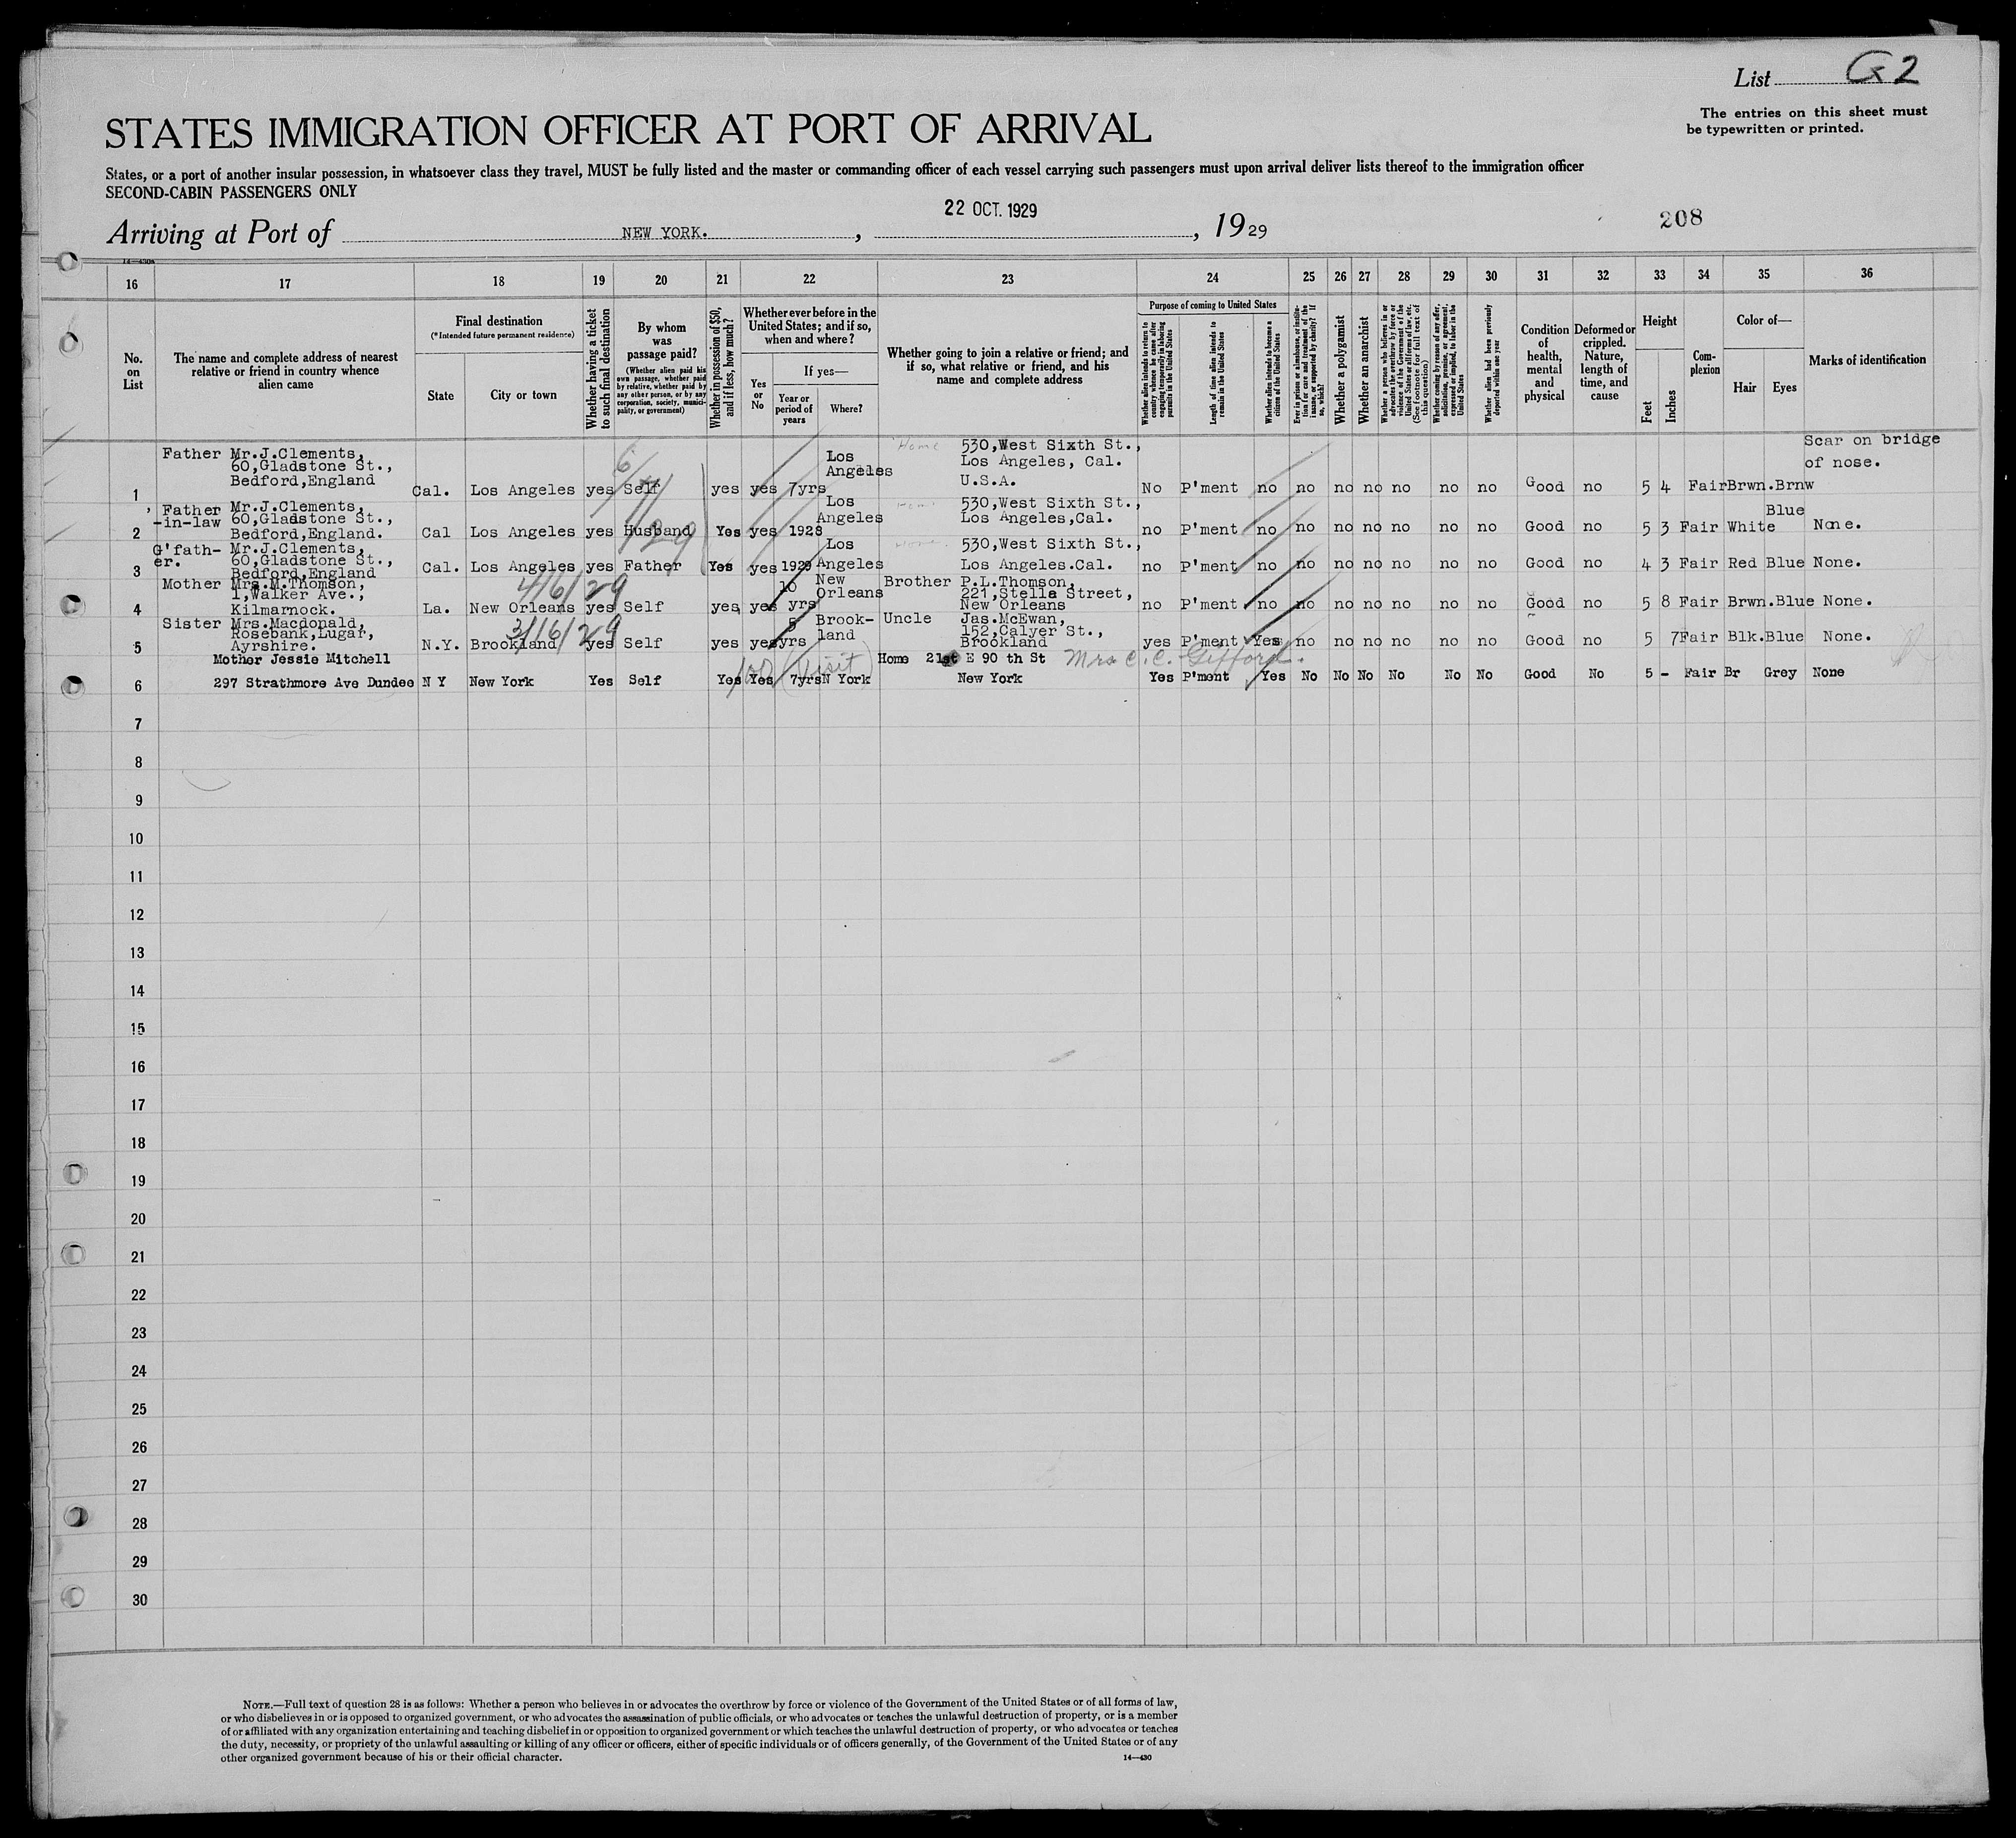 List G2
The entries on this sheet must
be typewritten or printed.
STATES IMMIGRATION OFFICER AT PORT OF ARRIVAL
States, or a port of another insular possession, in whatsoever class they travel, MUST be fully listed and the master or commanding officer of each vessel carrying such passengers must upon arrival deliver lists thereof to the immigration officer
SECOND-CABIN PASSENGERS ONLY
22 OCT. 1929
208
Arriving at Port of NEW YORK. , , 1929
16 17 18 19 20 21 22 23 24 25 26 27 28 29 30 31 32 33 34 35 36
No.
on
List
The name and complete address of nearest
relative or friend in country whence
alien came
Final destination
(*Intended future permanent residence)
State
City or town
Whether having a ticket
to such final destination
By whom
was
passage paid?
(Whether alien paid his
own passage, whether paid
by relative, whether paid by
any other person, or by any
corporation, society, munici-
pality, or government)
Whether in possession of $50,
and if less, how much?
Whether ever before in the
United States; and if so,
when and where?
Yes
or
No
If yes—
Year or
period of
years
Where?
Whether going to join a relative or friend; and
if so, what relative or friend, and his
name and complete address
Purpose of coming to United States
Whether alien intends to return to
country whence he came after
engaging temporarily in laboring
pursuits in the United States
Length of time alien intends to
remain in the United States
Whether alien intends to become a
citizen of the United States
Ever in prison or almshouse, or institu-
tion for care and treatment of the
insane, or supported by charity? If
so, which?
Whether a polygamist
Whether an anarchist
Whether a person who believes in or
advocates the overthrow by force or
violence of the Government of the
United States or all forms of law, etc.
(See footnote for full text of
this question)
Whether coming by reason of any offer,
solicitation, promise, or agreement,
expressed or implied, to labor in the
United States
Whether alien had been previously
deported within one year
Condition
of
health,
mental
and
physical
Deformed or
crippled.
Nature,
length of
time, and
cause
Height
Feet
Inches
Com-
plexion
Color of—
Hair
Eyes
Marks of identification
1 Father Mr.J.Clements,
60,Gladstone St.,
Bedford,England
Cal. Los Angeles yes Self yes yes 7yrs Los
Angeles
Home 530,West Sixth St.,
Los Angeles, Cal.
U.S.A.
No P'ment no no no no no no no Good no 5 4 Fair Brwn. Brnw
Scar on bridge
of nose.
2 Father
-in-law
Mr.J.Clements,
60,Gladstone St.,
Bedford,England.
Cal Los Angeles yes Husband Yes yes 1928 Los
Angeles
Home 530,West Sixth St.,
Los Angeles,Cal.
no P'ment no no no no no no no Good no 5 3 Fair White Blue None.
3 G'fath-
er.
Mr.J.Clements,
60,Gladstone St.,
Bedford,England
Cal. Los Angeles yes Father Yes yes 1929 Los
Angeles
Home. 530,West Sixth St.,
Los Angeles.Cal.
no P'ment no no no no no no no Good no 4 3 Fair Red Blue None.
4 Mother Mrs.M.Thomson,
1,Walker Ave.,
Kilmarnock.
La. New Orleans yes Self yes yes 10
yrs New
Orleans
4/6/29
Brother P.L.Thomson,
221,Stella Street,
New Orleans
no P'ment no no no no no no no Good no 5 8 Fair Brwn. Blue None.
5 Sister Mrs.Macdonald,
Rosebank,Lugar,
Ayrshire.
N.Y. Brookland yes Self yes yes 5
yrs Brook-
land
3/16/29
Uncle Jas.McEwan,
152,Calyer St.,
Brookland
yes P'ment Yes no no no no no no Good no 5 7 Fair Blk. Blue None.
6 Mother Jessie Mitchell
297 Strathmore Ave Dundee
N Y New York Yes Self Yes Yes 7yrs N York
(Visit)
Home 21st E 90 th St Mrs C. C. Gifford.
New York
Yes P'ment Yes No No No No No No Good No 5 - Fair Br Grey None
7
8
9
10
11
12
13
14
15
16
17
18
19
20
21
22
23
24
25
26
27
28
29
30
NOTE.—Full text of question 28 is as follows: Whether a person who believes in or advocates the overthrow by force or violence of the Government of the United States or of all forms of law,
or who disbelieves in or is opposed to organized government, or who advocates the assassination of public officials, or who advocates or teaches the unlawful destruction of property, or is a member
of or affiliated with any organization entertaining and teaching disbelief in or opposition to organized government or which teaches the unlawful destruction of property, or who advocates or teaches
the duty, necessity, or propriety of the unlawful assaulting or killing of any officer or officers, either of specific individuals or of officers generally, of the Government of the United States or of any
other organized government because of his or their official character.
14—430